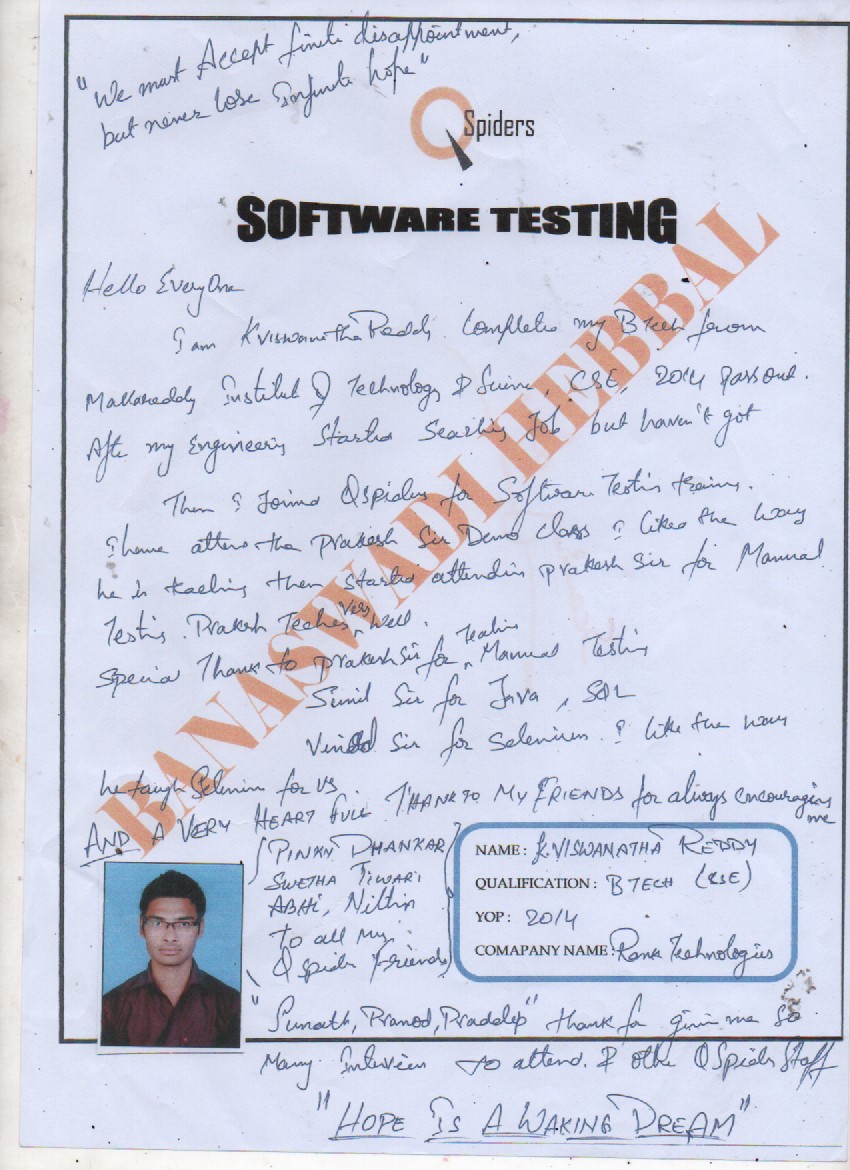 "We must Accept finite disappointment,
but never lose Infinite hope"
QSpiders
SOFTWARE TESTING
BANASWADI HEBBAL
Hello EveryOne
I am K Viswanatha Reddy. Completed my BTech from
Mallareddy Institute of Technology & Science, CSE, 2014 Passout.
After my Engineering Started Searching Job but haven't got
Then I Joined QSpiders for Software Testing training.
I have attend the Prakash Sir Demo Class I liked the way
he is teaching then Started attending Prakash Sir for Manual
Testing. Prakash Teaches very well.
Special Thanks to Prakash Sir for Teaching Manual Testing
Sunil Sir for Java, SQL
Vinod Sir for Selenium. I like the way
he taugh Selenium for us.
AND A VERY HEART FULL THANK TO MY FRIENDS for always encouraging me
(PINKY DHANKAR
SWETHA TIWARI
ABHI, Nithin
To all My
QSpiders friends)
NAME: K.VISWANATHA REDDY
QUALIFICATION: BTECH (CSE)
YOP: 2014
COMAPANY NAME: Rank Technologies
"Sunath, Pramod, Pradeep" thank for giving me So
Many Interviews to attend. & other QSpiders Staff
"HOPE IS A WAKING DREAM"